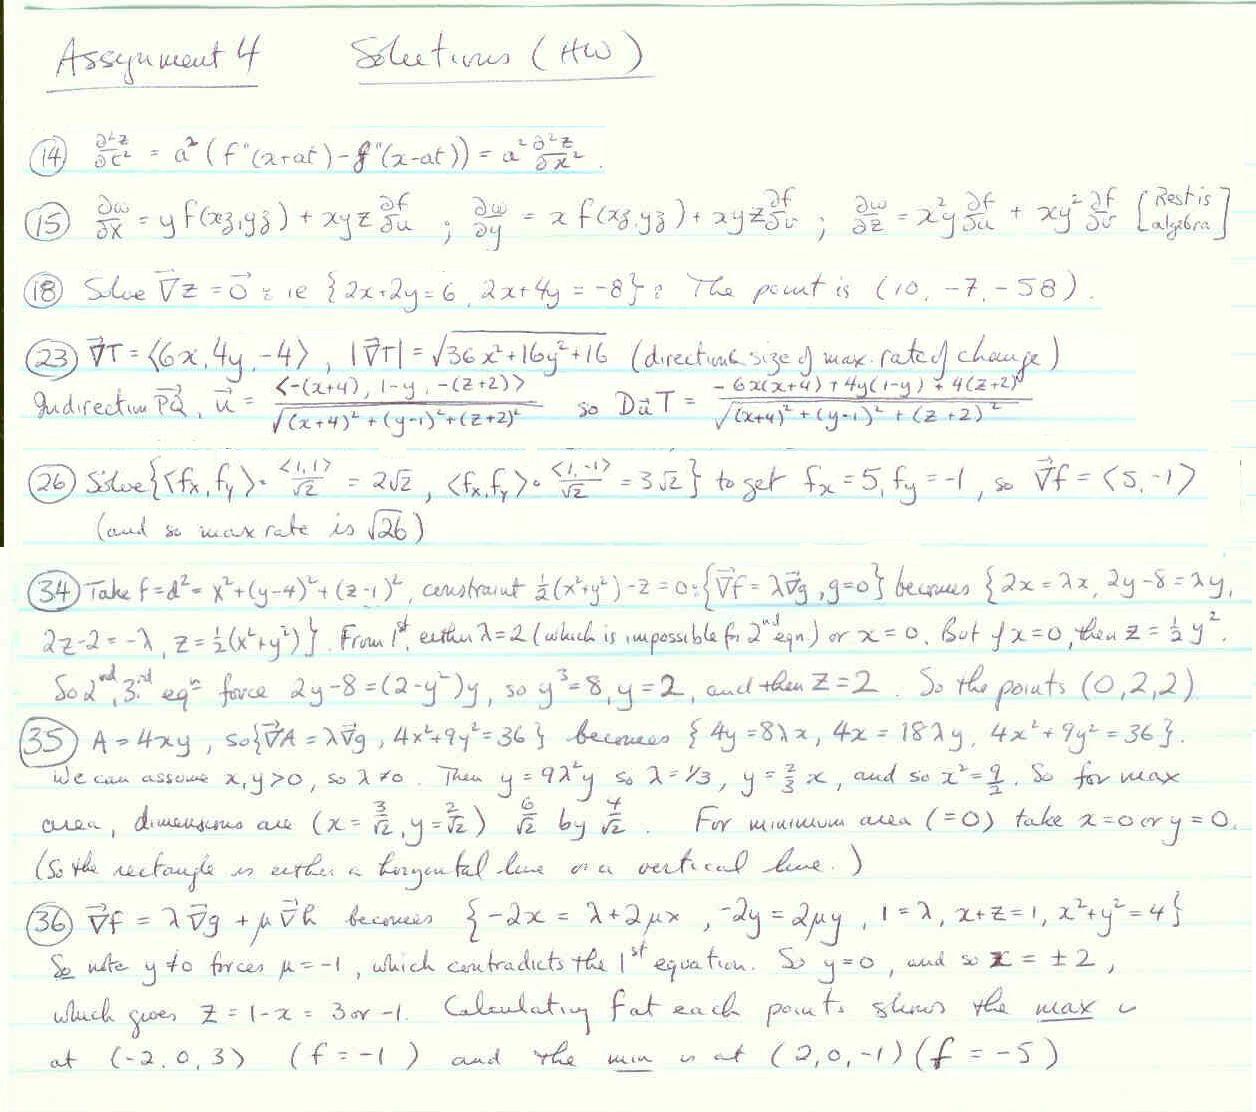 Assignment 4 Solutions (HW)
(14) ∂²z/∂t² = a² (f"(x+at) - g"(x-at)) = a² ∂²z/∂x².
(15) ∂w/∂x = y f(xz, yz) + xyz ∂f/∂u ; ∂w/∂y = x f(xz, yz) + xyz ∂f/∂v ; ∂w/∂z = x²y ∂f/∂u + xy² ∂f/∂v [Rest is algebra]
(18) Solve ∇⃗z = 0⃗ : ie {2x+2y=6, 2x+4y = -8} : The point is (10, -7, -58).
(23) ∇⃗T = ⟨6x, 4y, -4⟩, |∇⃗T| = √(36x²+16y²+16) (direction & size of max. rate of change)
In direction PQ⃗, u⃗ = <-(x+4), 1-y, -(z+2)> / √((x+4)² + (y-1)² + (z+2)²) so Du⃗T = (-6x(x+4) + 4y(1-y) + 4(z+2)) / √((x+4)² + (y-1)² + (z+2)²)
(26) Solve {<fx, fy> • <1,1>/√2 = 2√2, <fx, fy> • <1,-1>/√2 = 3√2} to get fx = 5, fy = -1, so ∇⃗f = <5, -1>
(and so max rate is √26)
(34) Take f=d² = x²+(y-4)²+(z-1)², constraint ½(x²+y²)-z=0: {∇⃗f = λ∇⃗g, g=0} becomes {2x = λx, 2y-8 = λy,
2z-2 = -λ, z = ½(x²+y²)}. From 1st, either λ=2 (which is impossible for 2nd eqn) or x=0. But if x=0, then z = ½y².
So 2nd, 3rd eqns force 2y-8 = (2-y²)y, so y³=8, y=2, and then z=2. So the points (0,2,2).
(35) A = 4xy, so {∇⃗A = λ∇⃗g, 4x²+9y²=36} becomes {4y=8λx, 4x = 18λy, 4x²+9y²=36}.
We can assume x,y>0, so λ≠0. Then y = 9λ²y so λ=1/3, y = ⅔x, and so x² = 9/2. So for max
area, dimensions are (x = 3/√2, y = 2/√2) 6/√2 by 4/√2. For minimum area (=0) take x=0 or y=0.
(So the rectangle is either a horizontal line or a vertical line.)
(36) ∇⃗f = λ∇⃗g + μ∇⃗h becomes {-2x = λ+2μx, -2y = 2μy, 1=λ, x+z=1, x²+y²=4}
So note y≠0 forces μ=-1, which contradicts the 1st equation. So y=0, and so x = ±2,
which gives z = 1-x = 3 or -1. Calculating f at each points shows the max is
at (-2, 0, 3) (f = -1) and the min is at (2, 0, -1) (f = -5)